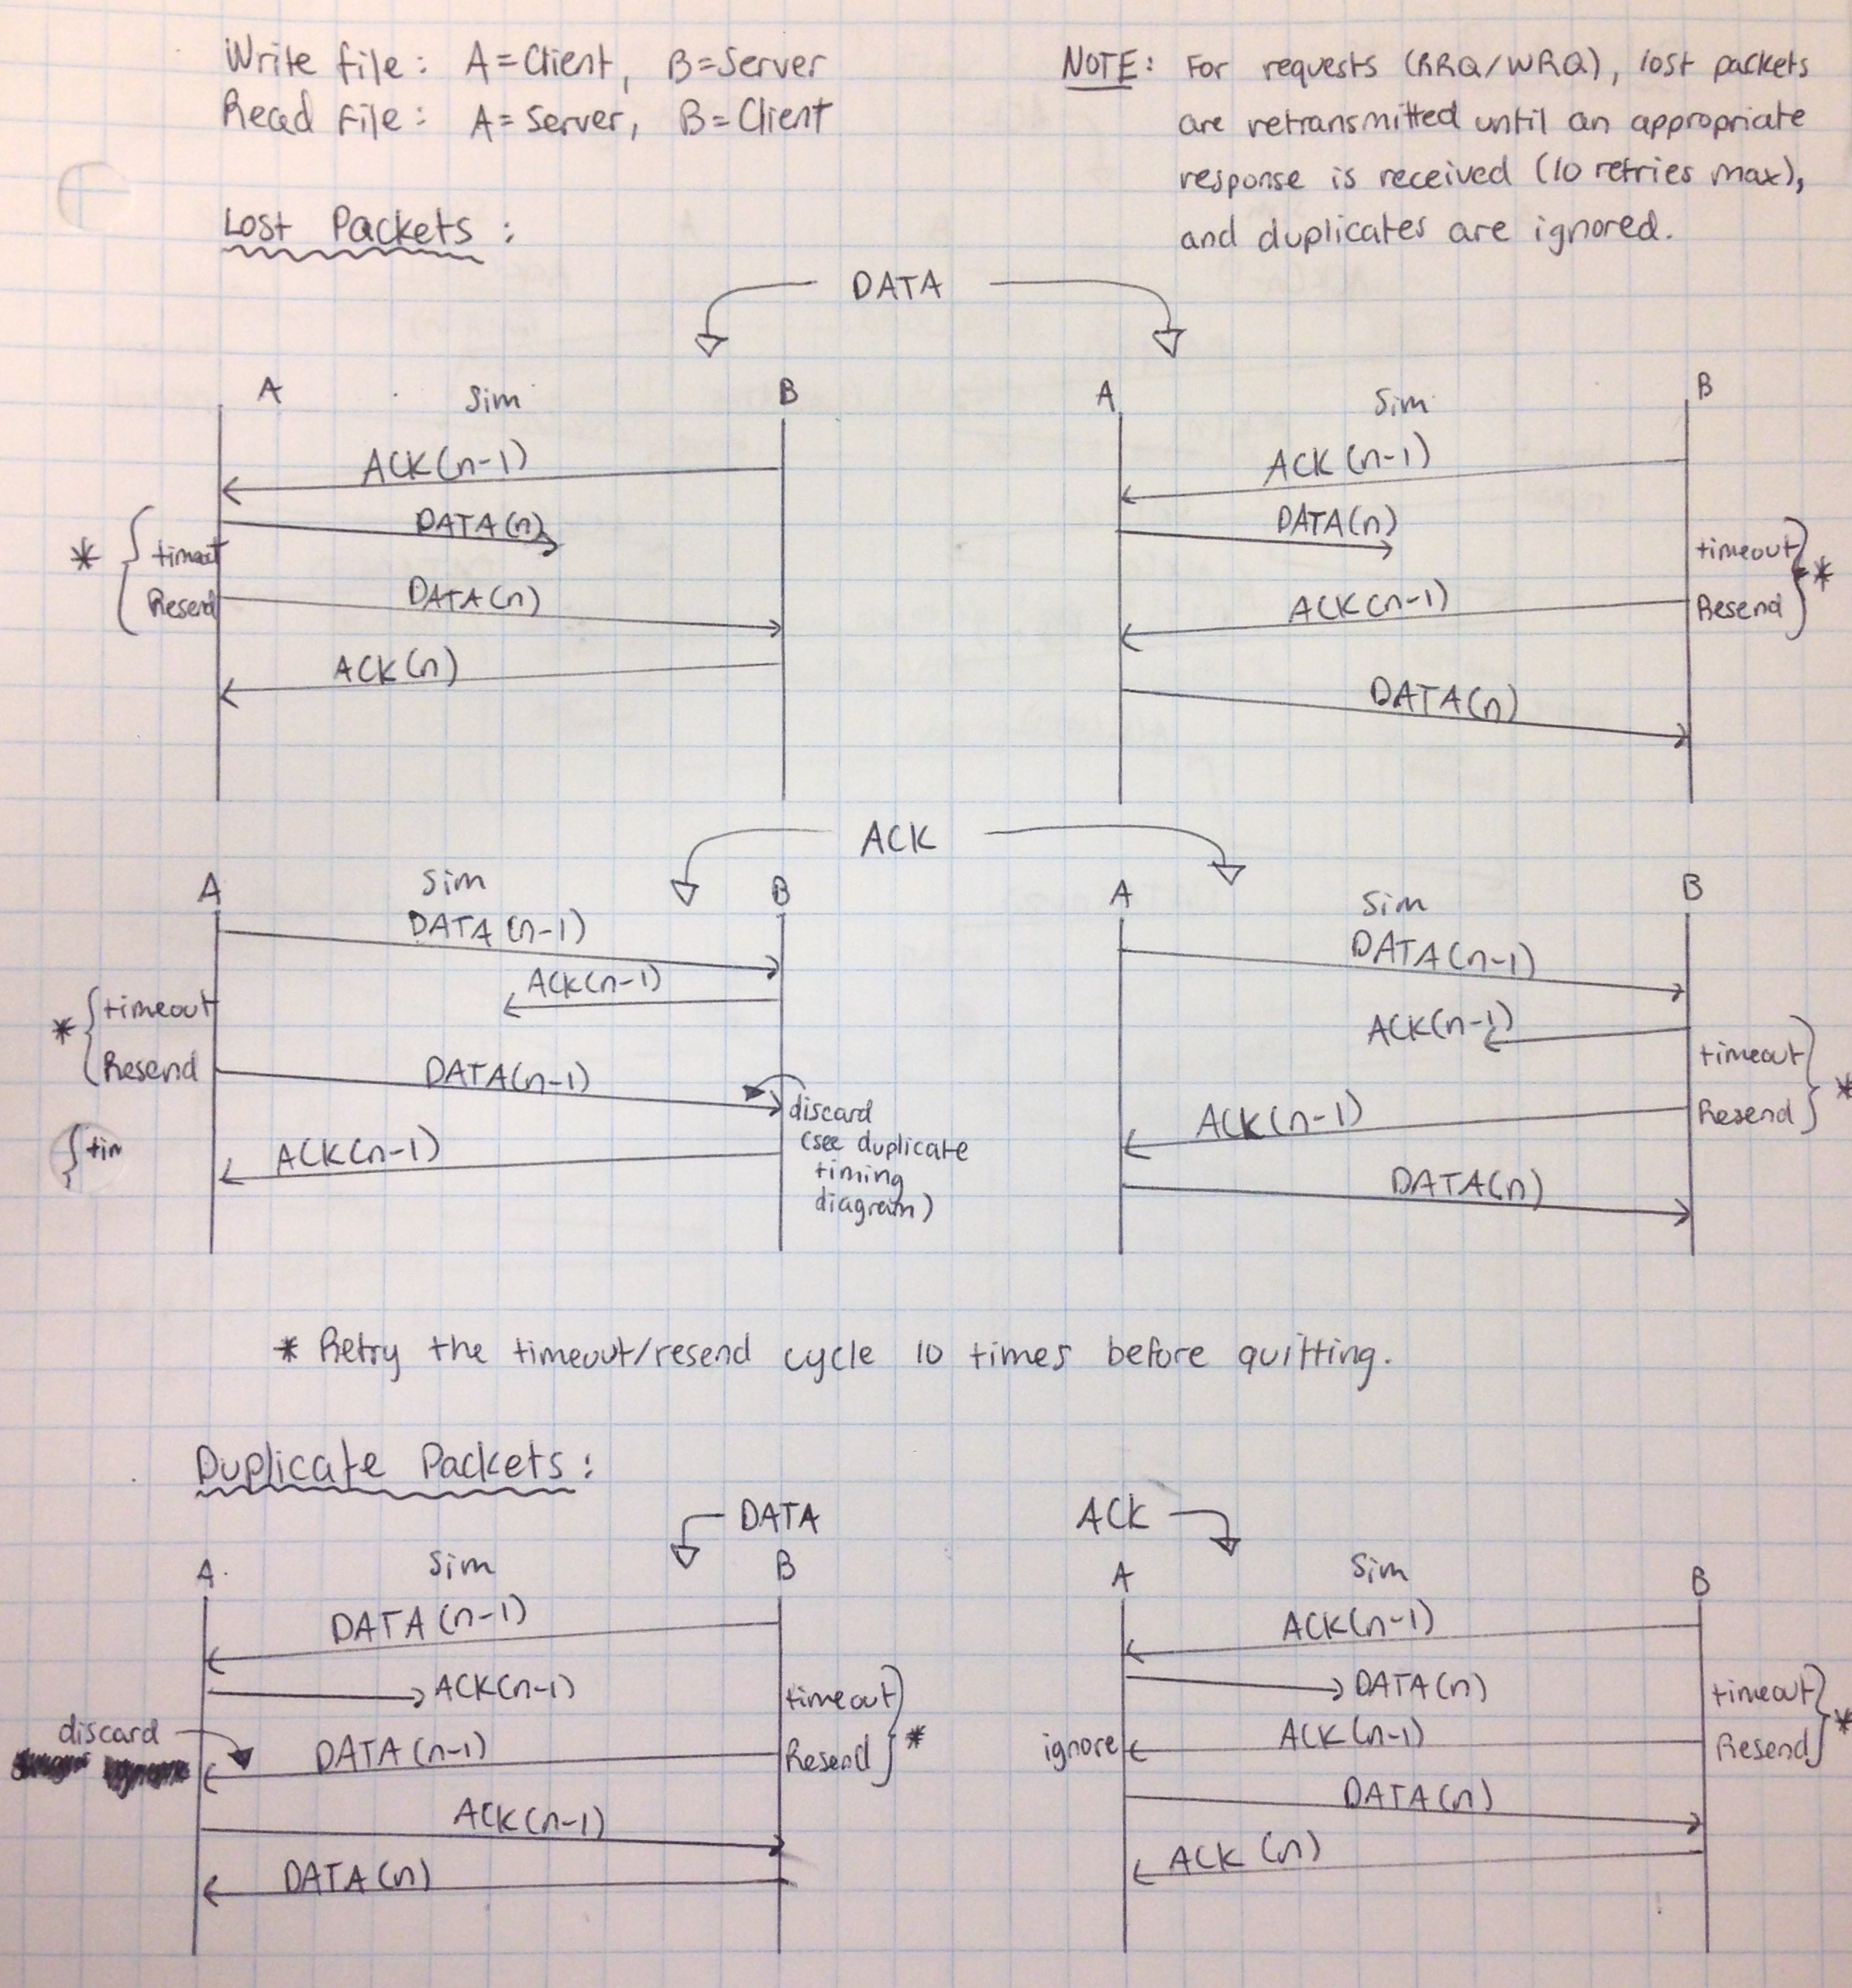 Write file: A=Client, B=Server
Read file: A=Server, B=Client
NOTE: For requests (RRQ/WRQ), lost packets
are retransmitted until an appropriate
response is received (10 retries max),
and duplicates are ignored.
Lost Packets:
DATA
A Sim B
ACK(n-1)
DATA(n)
* { timeout
Resend
DATA(n)
ACK(n)
A Sim B
ACK(n-1)
DATA(n)
timeout } *
Resend
ACK(n-1)
DATA(n)
ACK
A Sim B
DATA(n-1)
ACK(n-1)
* { timeout
Resend
DATA(n-1)
discard
(see duplicate
timing
diagram)
{ tim
ACK(n-1)
A Sim B
DATA(n-1)
ACK(n-1)
timeout } *
Resend
ACK(n-1)
DATA(n)
* Retry the timeout/resend cycle 10 times before quitting.
Duplicate Packets:
DATA
A Sim B
DATA(n-1)
ACK(n-1)
timeout } *
Resend
discard
DATA(n-1)
ACK(n-1)
DATA(n)
ACK
A Sim B
ACK(n-1)
DATA(n)
timeout } *
Resend
ignore
ACK(n-1)
DATA(n)
ACK(n)